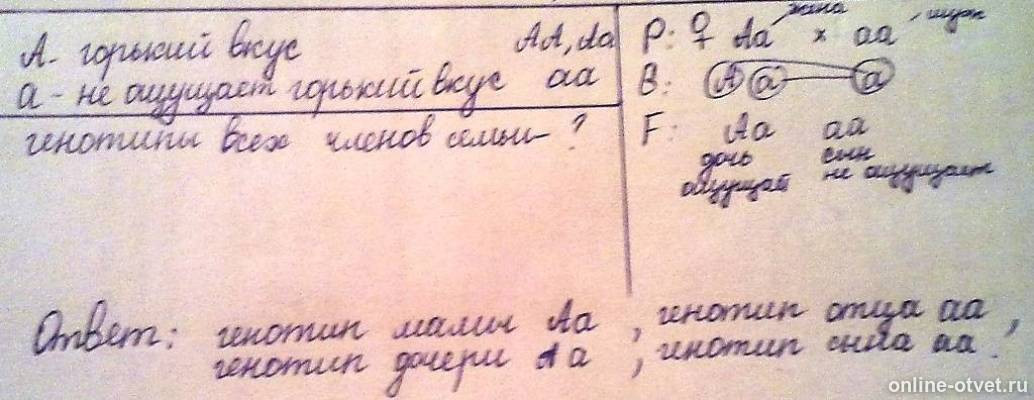 А- горький вкус АА, Аа
а - не ощущает горький вкус аа
генотипы всех членов семьи - ?
жена муж
Р: ♀ Аа х аа
В: А а а
F: Аа аа
дочь сын
ощущает не ощущает
Ответ: генотип мамы Аа, генотип отца аа,
генотип дочери Аа, генотип сына аа.
online-otvet.ru